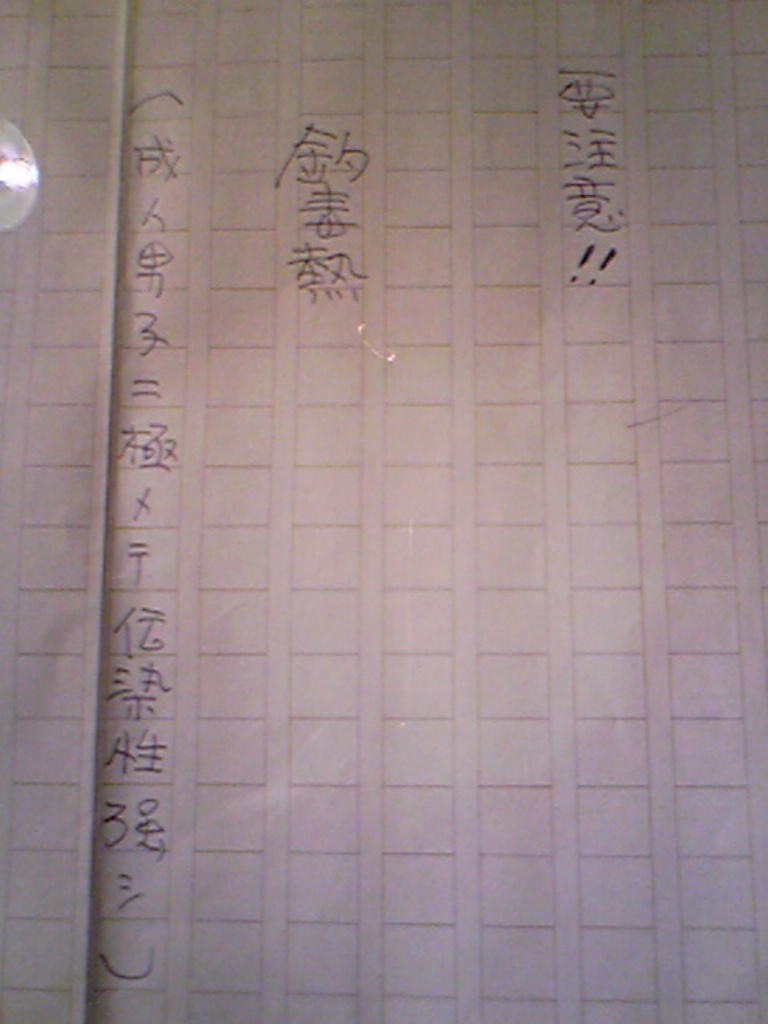 要注意!!
釣毒熱
(成人男子ニ極メテ伝染性強シ)